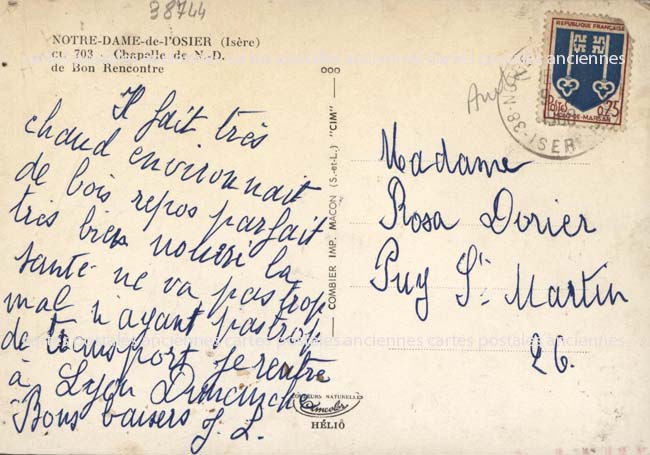 38744
NOTRE-DAME-de-l'OSIER (Isère)
ct. 703 - Chapelle de N.-D.
de Bon Rencontre
Il fait très
chaud environnait
de bois repos parfait
très bien nourri la
santé ne va pas trop
mal n'ayant pas trop
de transport je rentre
à Lyon Dimanche
Bons baisers J. L.
COMBIER IMP. MACON (S.-et-L.) "CIM"
COULEURS NATURELLES
HÉLIO
REPUBLIQUE FRANÇAISE
POSTES
0,25
MONT-DE-MARSAN
ISERE
Madame
Rosa Dorier
Puy St Martin
26.
cartes postales anciennes